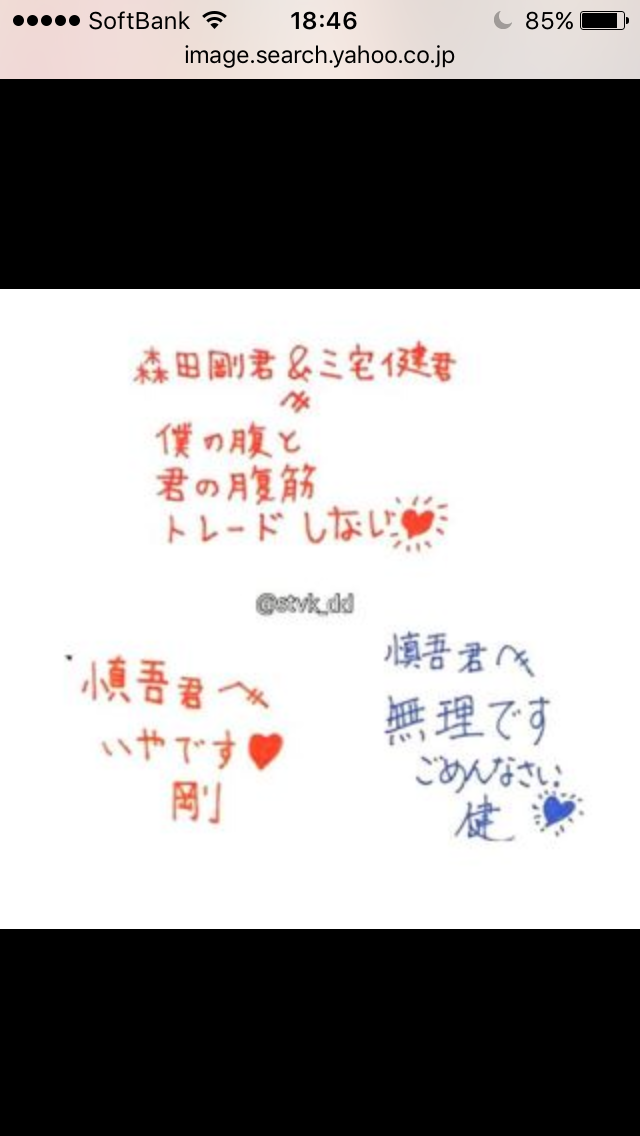 SoftBank 18:46 85%
image.search.yahoo.co.jp
森田剛君&三宅健君
へ
僕の腹と
君の腹筋
トレードしない♥
@stvk_dd
慎吾君へ
いやです♥
剛
慎吾君へ
無理です
ごめんなさい
健♥